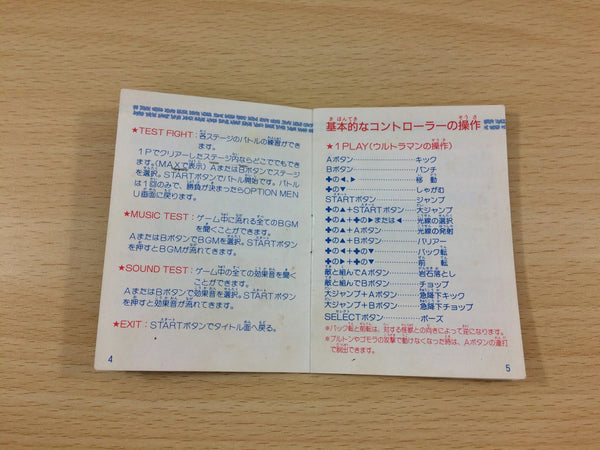 ★TEST FIGHT：各ステージのバトルの練習ができ
ます。
1Pでクリアーしたステージ内ならどこでもでき
ます。(MAXで表示) AまたはBボタンでステージ
を選択。STARTボタンでバトル開始です。バトル
は1回のみで、勝負が決まったらOPTION MEN
U画面に戻ります。
★MUSIC TEST：ゲーム中に流れる全てのBGM
を聞くことができます。
AまたはBボタンでBGMを選択。STARTボタン
を押すとBGMが流れてきます。
★SOUND TEST：ゲーム中の全ての効果音を聞く
ことができます。
AまたはBボタンで効果音を選択。STARTボタ
ンを押すと効果音が流れてきます。
★EXIT：STARTボタンでタイトル画面へ戻る。
4
基本的なコントローラーの操作
★1 PLAY(ウルトラマンの操作)
Aボタン……キック
Bボタン……パンチ
✚の◀、▶……移動
✚の▼……しゃがむ
STARTボタン……ジャンプ
✚の▲+STARTボタン……大ジャンプ
✚の▲+✚の▶または◀……光線の選択
✚の▲+Aボタン……光線の発射
✚の▲+Bボタン……バリアー
✚の◀+✚の▼……バック転
✚の▶+✚の▼……前転
敵と組んでAボタン……岩石落とし
敵と組んでBボタン……チョップ
大ジャンプ+Aボタン……急降下キック
大ジャンプ+Bボタン……急降下チョップ
SELECTボタン……ポーズ
※バック転と前転は、対する怪獣との向きによって逆になります。
※ブルトンやゴモラの攻撃で動けなくなった時は、Aボタンの連打
で脱出できます。
5